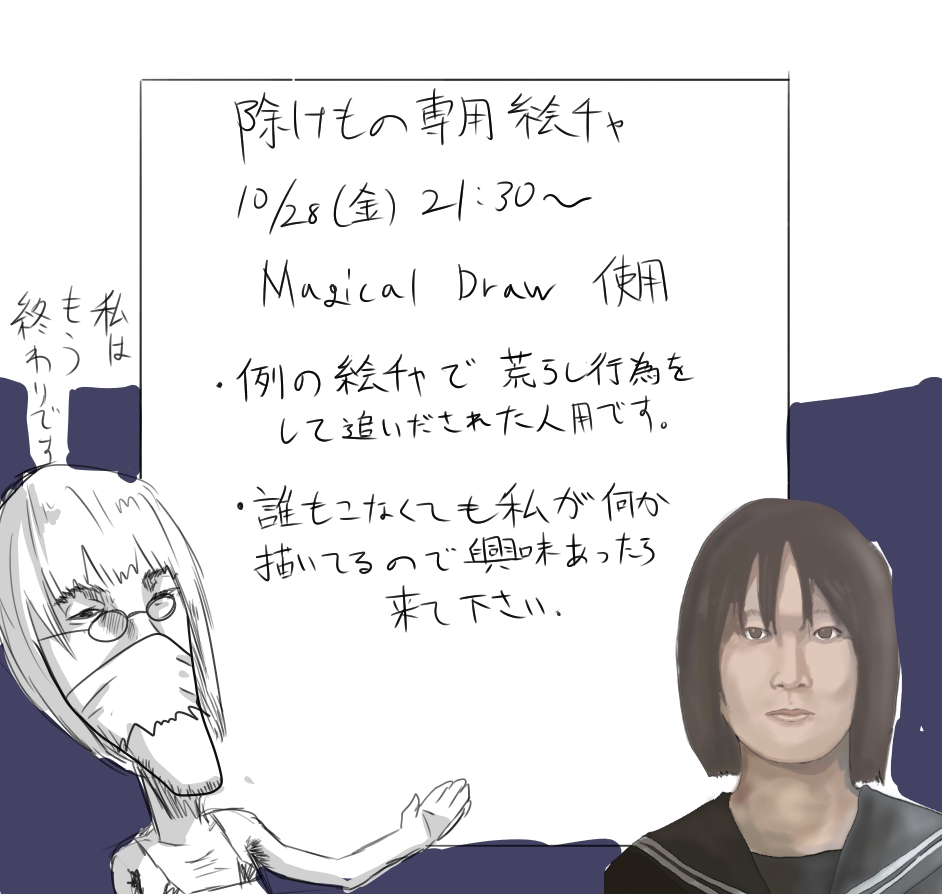 除けもの専用絵チャ
10/28(金) 21:30～
Magical Draw 使用
・例の絵チャで荒らし行為を
して追いだされた人用です。
・誰もこなくても私が何か
描いてるので興味あったら
来て下さい.
私は
もう
終わりです